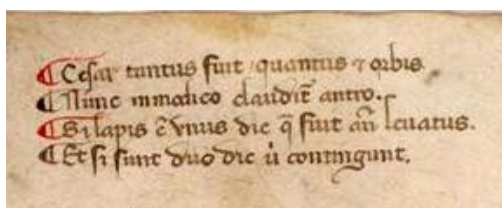 ¶ Cesar tantus fuit quantus ⁊ orbis
¶ Nunc in modico claudit᷑ antro.
¶ Si lapis ē vnus dic q̄ fuit an̄ leuatus.
¶ Et si sunt duo dic ù contingunt.